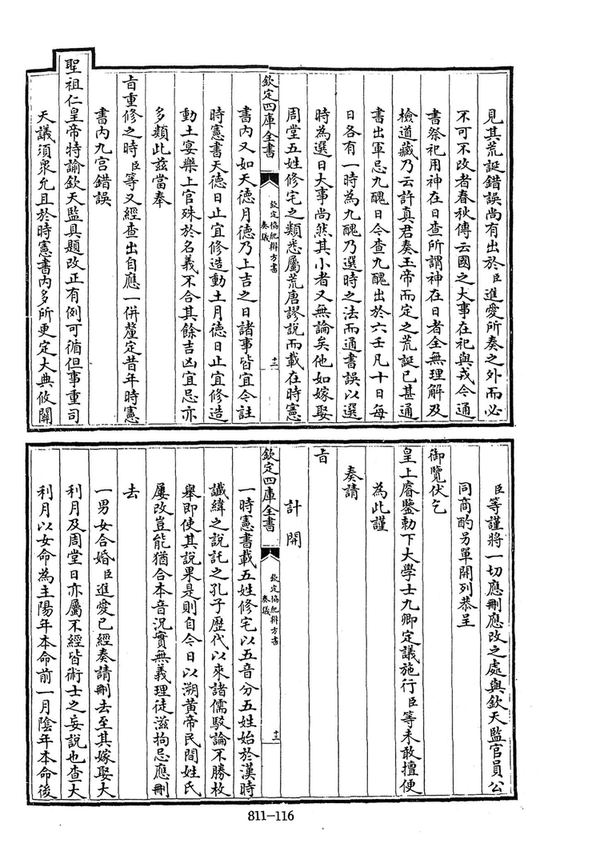 見其荒誕錯誤尚有出於臣進愛所奏之外而必
不可不改者春秋傳云國之大事在祀與戎今通
書祭祀用神在日查所謂神在日者全無理解及
檢道藏乃云許真君奏玉帝而定之荒誕已甚通
書出軍忌九醜日今查九醜出於六壬凡十日每
日各有一時為九醜乃選時之法而通書誤以選
時為選日大事尚然其小者又無論矣他如嫁娶
周堂五姓修宅之類悉屬荒唐謬說而載在時憲
欽定四庫全書
欽定協紀辨方書
奏議
十二
書內又如天德月德乃上吉之日諸事皆宜今註
時憲書天德日止宜修造動土月德日止宜修造
動土宴樂上官殊於名義不合其餘吉凶宜忌亦
多類此茲當奉
旨重修之時臣等又經查出自應一併釐定昔年時憲
書內九宮錯誤
聖祖仁皇帝特諭欽天監具題改正有例可循但事重司
天議須衆允且於時憲書內多所更定大典攸關
臣等謹將一切應刪應改之處與欽天監官員公
同商酌另單開列恭呈
御覽伏乞
皇上睿鑒勅下大學士九卿定議施行臣等未敢擅便
為此謹
奏請
旨
計開
欽定四庫全書
欽定協紀辨方書
奏議
十三
一時憲書載五姓修宅以五音分五姓始於漢時
讖緯之說託之孔子歷代以來諸儒駁論不勝枚
舉即使其說果是則自今日以溯黃帝民間姓氏
屢改豈能猶合本音況實無義理徒滋拘忌應刪
去
一男女合婚臣進愛已經奏請刪去至其嫁娶大
利月及周堂日亦屬不經皆術士之妄說也查大
利月以女命為主陽年本命前一月陰年本命後
811-116